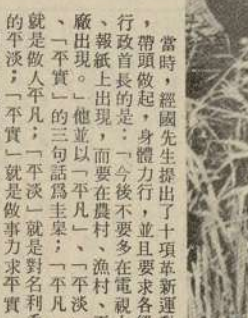 當時，經國先生提出了十項革新運
，帶頭做起，身體力行，並且要求各
行政首長的是：「今後不要多在電視
、報紙上出現，而要在農村、漁村、
廠出現。」他並以「平凡」、「平淡
、「平實」的三句話爲圭臬；「平凡
就是做人平凡；「平淡」就是對名利
的平淡；「平實」就是做事力求平實